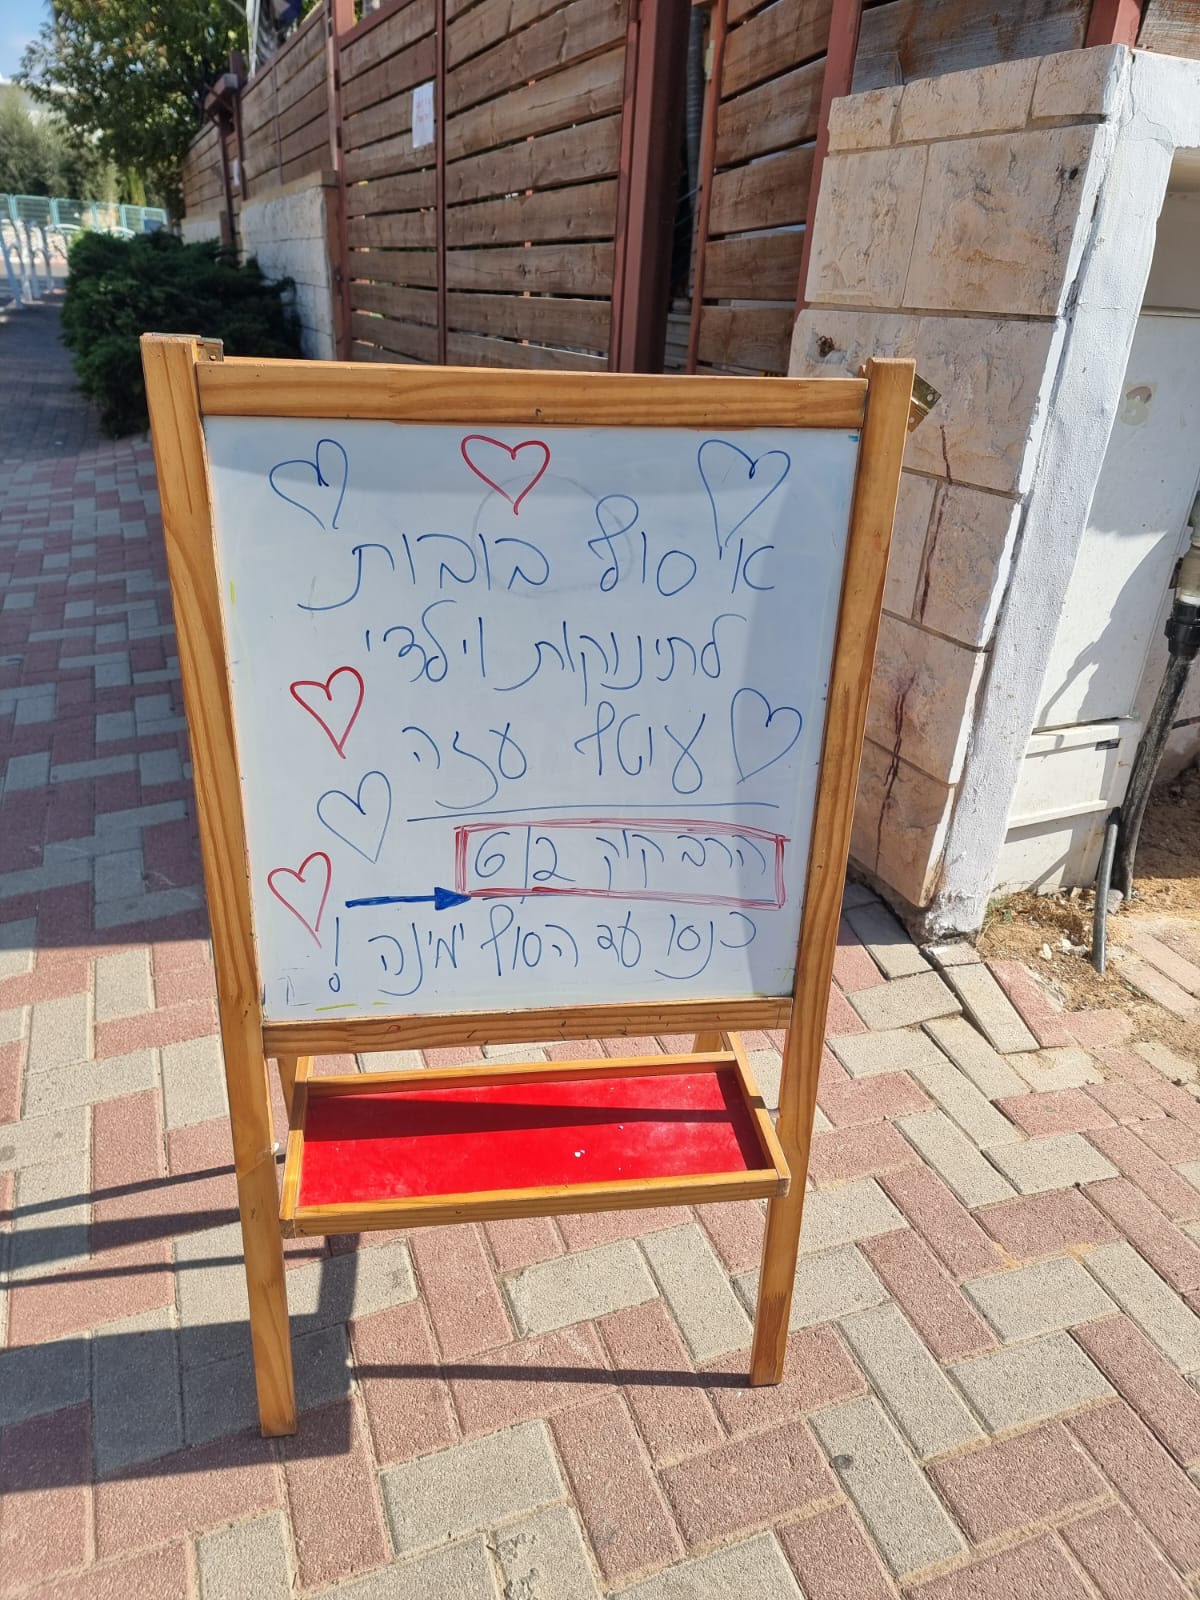 איסוף בובות
לתינוקות וילדי
עוטף עזה
הרב קוק 6/2
כנסו עד הסוף ימינה!